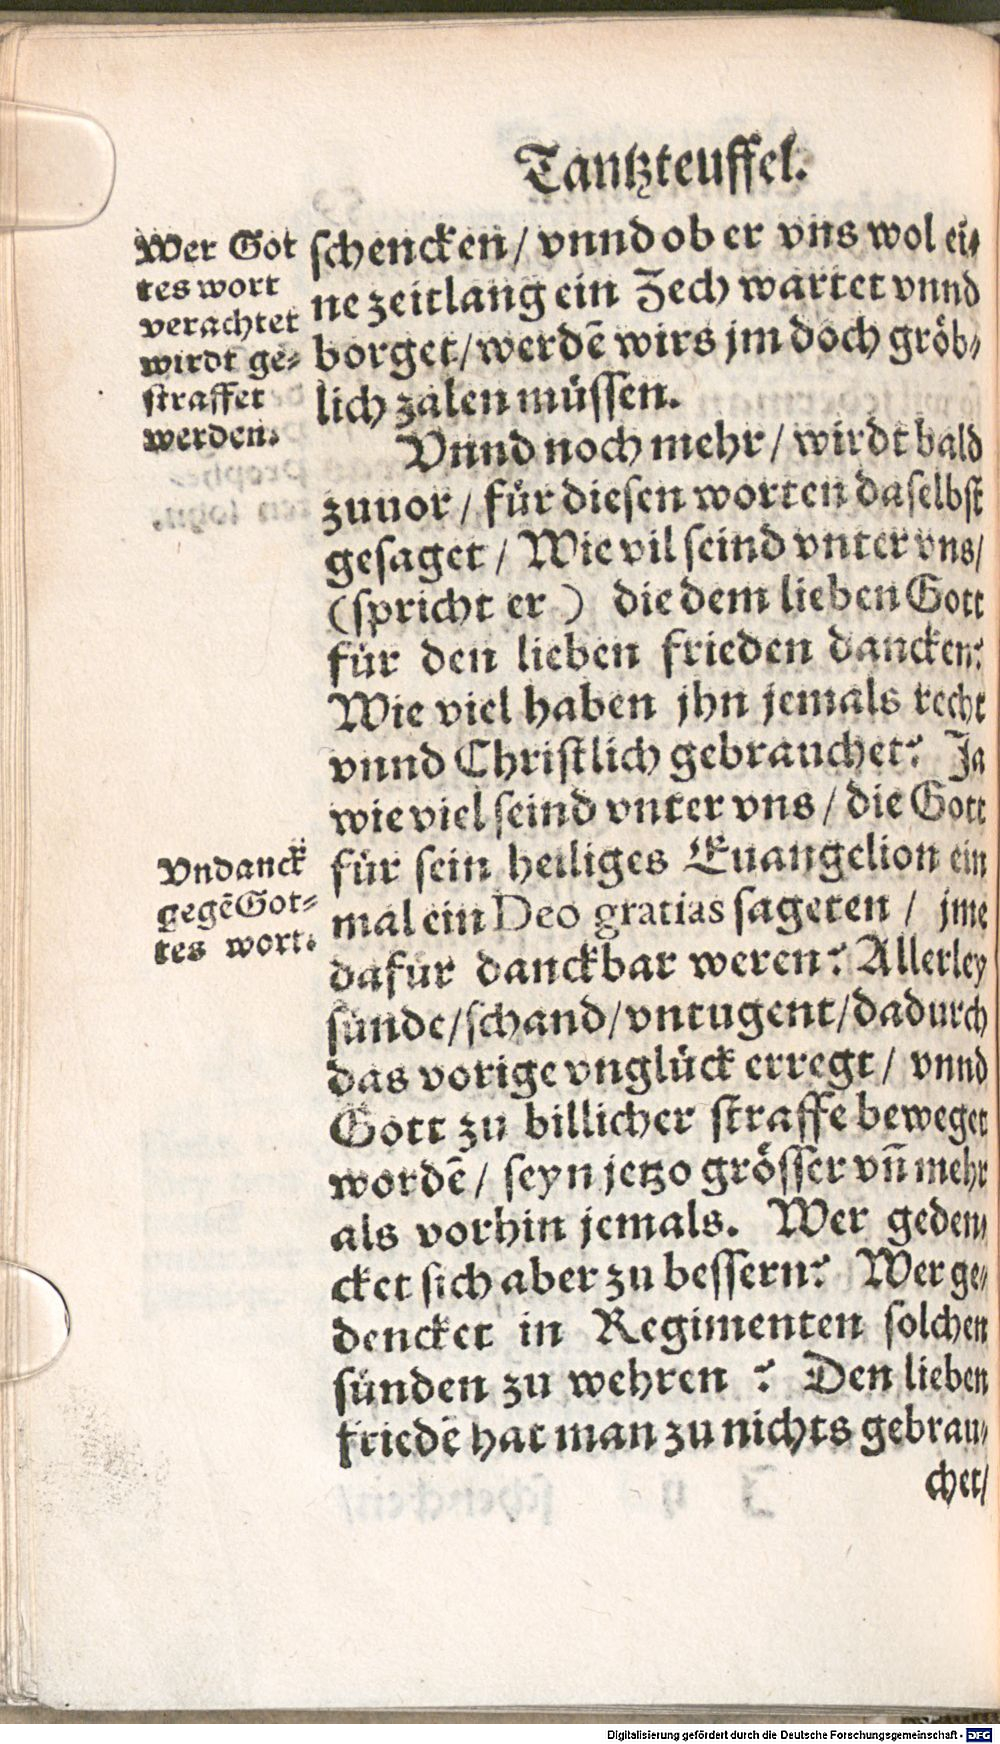 Tantzteuffel.
Wer Got
tes wort
verachtet
wirdt ge-
straffet
werden.
schencken / vnnd ob er vns wol ei-
ne zeitlang ein Zech wartet vnnd
borget / werdẽ wirs jm doch gröb-
lich zalen müssen.
Vnnd noch mehr / wirdt bald
zuuor / für diesen worten daselbst
gesaget / Wie vil seind vnter vns /
(spricht er) die dem lieben Gott
für den lieben frieden dancken?
Wie viel haben jhn jemals recht
vnnd Christlich gebrauchet? Ja
wie viel seind vnter vns / die Gott
für sein heiliges Euangelion ein
mal ein Deo gratias sageten / jme
dafür danckbar weren? Allerley
sünde / schand / vntugent / dadurch
das vorige vnglück erregt / vnnd
Gott zu billicher straffe beweget
wordẽ / seyn jetzo grösser vñ mehr
als vorhin jemals. Wer geden-
cket sich aber zu bessern? Wer ge-
dencket in Regimenten solchen
sünden zu wehren? Den lieben
friedẽ hat man zu nichts gebrau-
chet /
Vndanck
gegẽ Got-
tes wort.
Digitalisierung gefördert durch die Deutsche Forschungsgemeinschaft - DFG